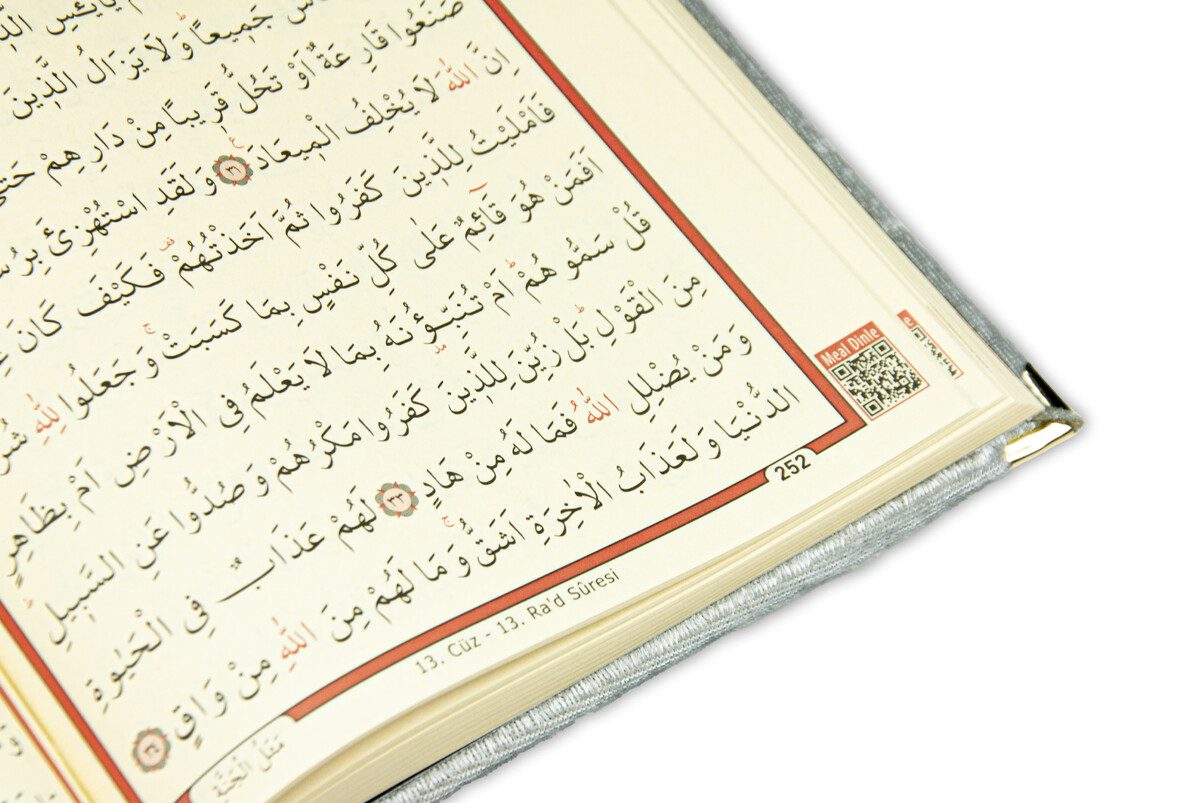 جَمٖيعاًۜ وَلَا يَزَالُ الَّذٖينَ
صَنَعُوا قَارِعَةٌ اَوْ تَحُلُّ قَرٖيباً مِنْ دَارِهِمْ حَتّٰى
اِنَّ اللّٰهَ لَا يُخْلِفُ الْمٖيعَادَ ٣١ وَلَقَدِ اسْتُهْزِئَ
فَاَمْلَيْتُ لِلَّذٖينَ كَفَرُوا ثُمَّ اَخَذْتُهُمْ فَكَيْفَ كَانَ
اَفَمَنْ هُوَ قَٓائِمٌ عَلٰى كُلِّ نَفْسٍ بِمَا كَسَبَتْۚ وَجَعَلُوا لِلّٰهِ
قُلْ سَمُّوهُمْۜ اَمْ تُنَبِّؤُ۫نَهُ بِمَا لَا يَعْلَمُ فِي الْاَرْضِ اَمْ بِظَاهِرٍ
مِنَ الْقَوْلِۜ بَلْ زُيِّنَ لِلَّذٖينَ كَفَرُوا مَكْرُهُمْ وَصُدُّوا عَنِ السَّبٖيلِۜ
وَمَنْ يُضْلِلِ اللّٰهُ فَمَا لَهُ مِنْ هَادٍ ٣٣ لَهُمْ عَذَابٌ فِي الْحَيٰوةِ
الدُّنْيَا وَلَعَذَابُ الْاٰخِرَةِ اَشَقُّۚ وَمَا لَهُمْ مِنَ اللّٰهِ مِنْ وَاقٍ ٣٤
Meal Dinle
252
13. Cüz - 13. Ra'd Sûresi
مَثَلُ الْجَنَّةِ